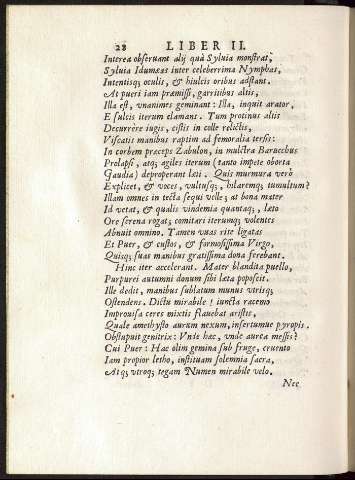 28 LIBER II.
Interea obseruant alij quà Syluia monstrat,
Syluia Idumæas inter celeberrima Nymphas,
Intentisq; oculis, & hiulcis oribus adstant.
At pueri iam præmissi, garritibus altis,
Illa est, vnanimes geminant: Illa, inquit arator,
E sulcis iterum clamant. Tum protinus altis
Decurrere iugis, cistis in colle relictis,
Viscatis manibus raptim ad femoralia tersis:
In corbem præceps Zabulon, in mulctra Baruccbus
Prolapsi, atq; agiles iterum (tanto impete oborta
Gaudia) deproperant læti. Quis murmura verò
Explicet, & voces, vultusq;, hilaremq; tumultum?
Illam omnes in tecta sequi velle; at bona mater
Id vetat, & qualis vindemia quantaq;, læto
Ore serena rogat; comitari iterumq; volentes
Abnuit omnino. Tamen vuas rite ligatas
Et Puer, & custos, & formosissima Virgo,
Quisq; suas manibus gratissima dona ferebant.
Hinc iter accelerant. Mater blandita puello,
Purpurei autumni donum sibi læta poposcit.
Ille dedit, manibus sublatum munus vtrisq;
Ostendens. Dictu mirabile! iuncta racemo
Improuisa ceres mixtis flauebat aristis,
Quale amethysto aurum nexum, insertumue pyropis.
Obstupuit genitrix: Vnde hæc, vnde aurea messis?
Cui Puer: Hac olim gemina sub fruge, cruento
Iam propior letho, instituam solemnia sacra,
Atq; vtroq; tegam Numen mirabile velo.
Nec